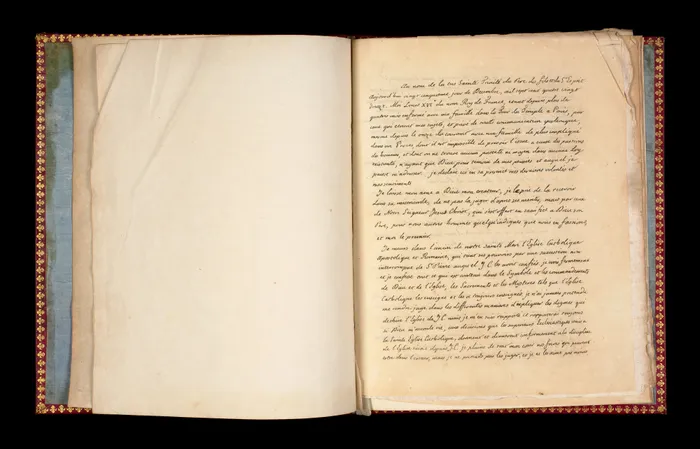 Au nom de la tres Sainte Trinité du Pere du fils et du St Esprit
Aujourd'hui vingt cinquieme jour de Decembre, mil sept cent quatre vingt
douze. Moi Louis XVI du nom Roy de France, etant depuis plus de
quatre mois enfermé avec ma famille dans la Tour du Temple a Paris, par
ceux qui etoient mes sujets, et privé de toute communication quelconque,
mesme depuis le onze du courant avec ma famille de plus impliqué
dans un Procès dont il est impossible de prevoir l'issue a cause des passions
des hommes, et dont on ne trouve aucun pretexte ni moyen dans aucune Loy
existante, n'ayant que Dieu pour temoin de mes pensées et auquel je
puisse m'adresser. je declare ici en sa presence mes dernieres volontés et
mes sentiments
Je laisse mon ame a Dieu mon createur, je le prie de la recevoir
dans sa misericorde, de ne pas la juger d'apres ses merites, mais par ceux
de Notre Seigneur Jesus Christ, qui s'est offert en sacrifice a Dieu son
Pere, pour nous autres hommes quelqu'indignes que nous en fussions,
et moi le premier.
Je meurs dans l'union de notre Sainte Mere l'Eglise Catholique
Apostolique et Romaine, qui tient ses pouvoirs par une succession non
interrompue de St Pierre auquel J.C. les avoit confiés, je crois fermement
et je confesse tout ce qui est contenu dans le Symbole et les commandements
de Dieu et de l'Eglise, les Sacrements et les Mysteres tels que l'Eglise
Catholique les enseigne et les a toujours enseignés. je n'ai jamais pretendu
me rendre juge dans les differentes manieres d'expliquer les dogmes qui
dechire l'Eglise de J.C. mais je m'en suis rapporté et rapporterai toujours
si Dieu m'accorde vie, aux decisions que les superieurs Ecclesiastiques unis a
la Sainte Eglise Catholique, donnent et donneront conformement a la discipline
de l'Eglise suivie depuis J.C. je plains de tout mon coeur nos freres qui peuvent
etre dans l'erreur, mais je ne pretends pas les juger, et je ne les aime pas moins